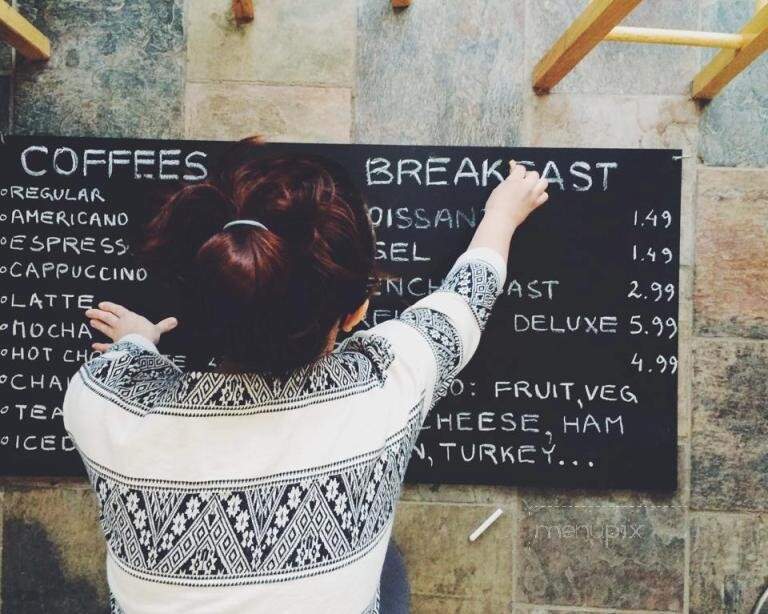 COFFEES
REGULAR
AMERICANO
ESPRESS
CAPPUCCINO
LATTE
MOCHA
HOT CHO
CHAI
TEA
ICED
BREAKFAST
OISSAN 1.49
GEL 1.49
ENCH AST 2.99
DELUXE 5.99
4.99
O: FRUIT, VEG
CHEESE, HAM
N, TURKEY...
menupix